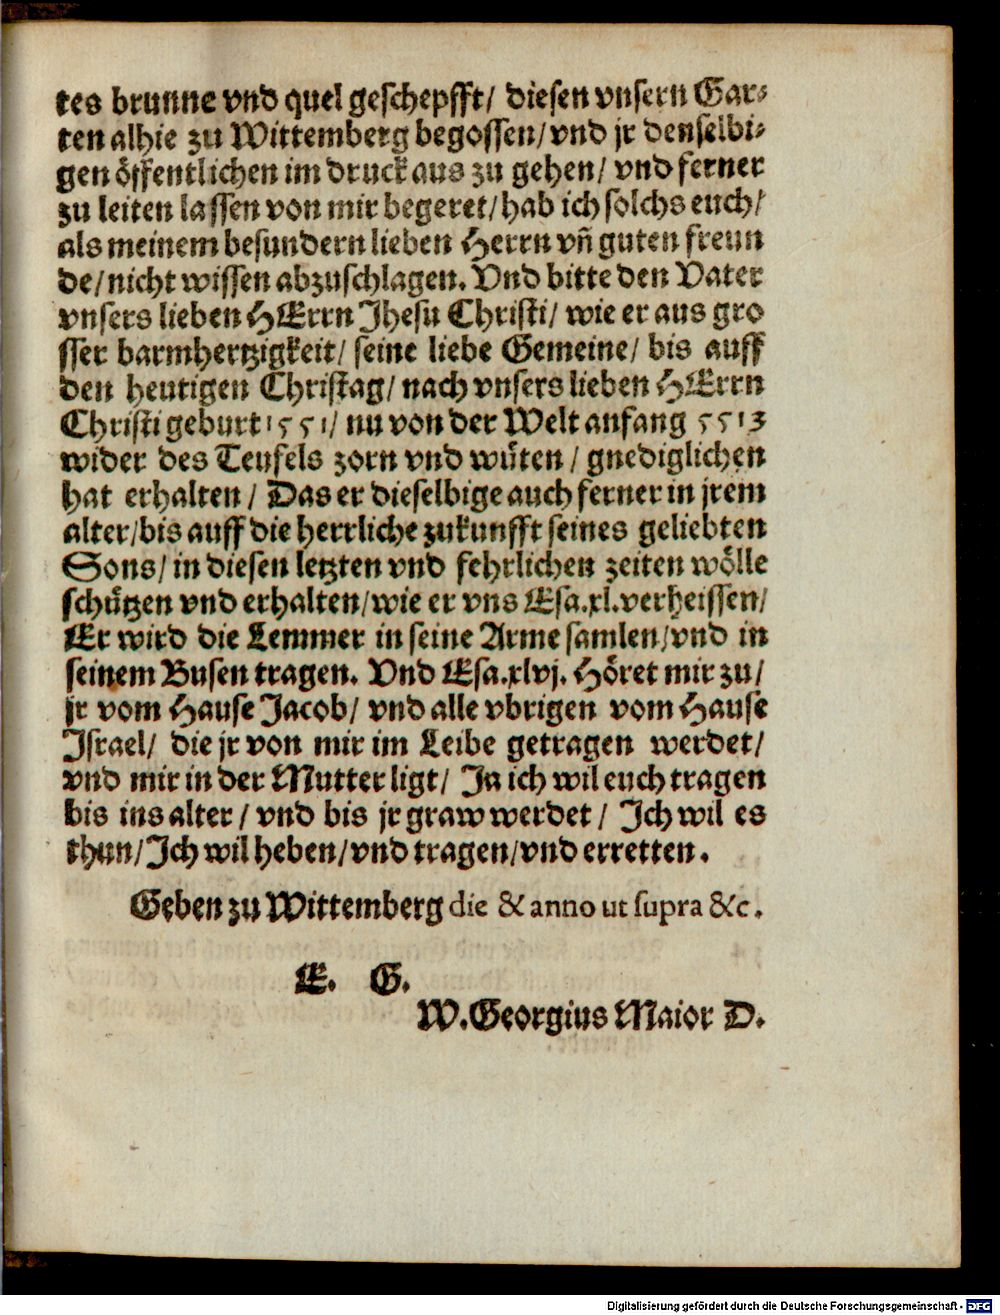 tes brunne vnd quel geschepfft/ diesen vnsern Gar⸗
ten alhie zu Wittemberg begossen/vnd jr denselbi⸗
gen öffentlichen im druck aus zu gehen/ vnd ferner
zu leiten lassen von mir begeret/hab ich solchs euch/
als meinem besundern lieben Herrn vñ guten freun
de/nicht wissen abzuschlagen. Vnd bitte den Vater
vnsers lieben HErrn Jhesu Christi/ wie er aus gro
sser barmhertzigkeit/ seine liebe Gemeine/ bis auff
den heutigen Christag/ nach vnsers lieben HErrn
Christi geburt 1551/ nu von der Welt anfang 5513
wider des Teufels zorn vnd wüten / gnediglichen
hat erhalten / Das er dieselbige auch ferner in jrem
alter/bis auff die herrliche zukunfft seines geliebten
Sons/ in diesen letzten vnd fehrlichen zeiten wölle
schützen vnd erhalten/wie er vns Esa.xl.verheissen/
Er wird die Lemmer in seine Arme samlen/vnd in
seinem Busen tragen. Vnd Esa.xlvj. Höret mir zu/
jr vom Hause Jacob/ vnd alle vbrigen vom Hause
Israel/ die jr von mir im Leibe getragen werdet/
vnd mir in der Mutter ligt/ Ja ich wil euch tragen
bis ins alter / vnd bis jr graw werdet / Ich wil es
thun/Ich wil heben/vnd tragen/vnd erretten.
Geben zu Wittemberg die & anno ut supra &c.
E. G.
W. Georgius Maior D.
Digitalisierung gefördert durch die Deutsche Forschungsgemeinschaft - DFG